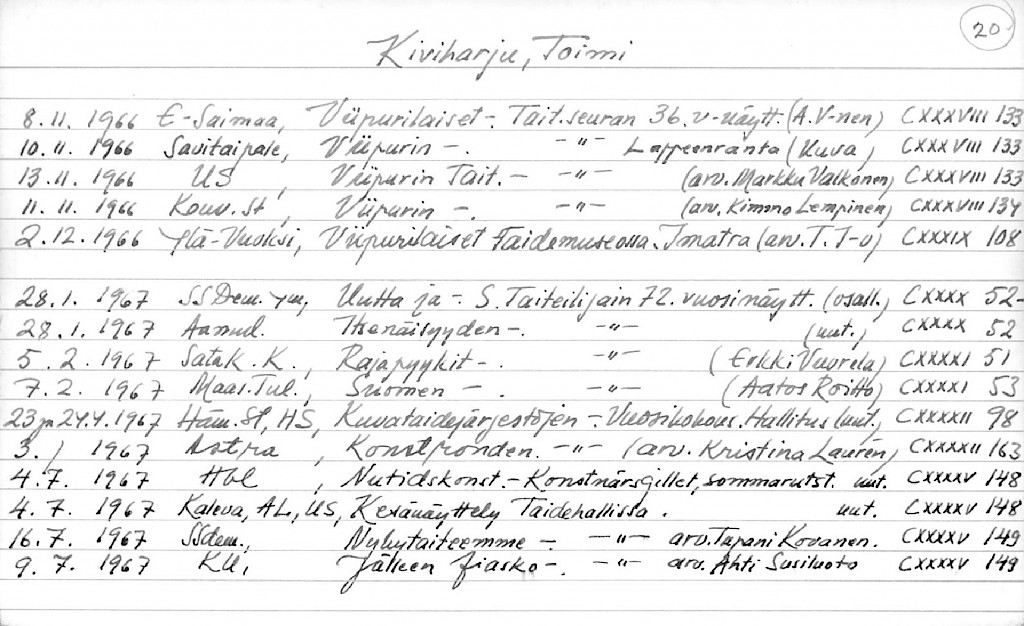 20
Kiviharju, Toimi
8.11. 1966 E-Saimaa, Viipurilaiset -. Tait.seuran 36. v-näytt. (A.V-nen) CXXXVIII 133
10.11. 1966 Savitaipale, Viipurin -. -"- Lappeenranta (kuva) CXXXVIII 133
13.11. 1966 US, Viipurin Tait. - -"- (arv. Markku Valkonen) CXXXVIII 133
11.11. 1966 Kouv. St, Viipurin -. -"- (arv. Kimmo Lempinen) CXXXVIII 134
2.12. 1966 Ylä-Vuoksi, Viipurilaiset Taidemuseossa. Imatra (arv. T. T-o) CXXXIX 108
28.1. 1967 SSDem. ym, Uutta ja -. S. Taiteilijain 72. vuosinäytt. (osall.) CXXXX 52-
28.1. 1967 Aamul. Itsenäisyyden -. -"- (uut.) CXXXX 52
5.2. 1967 Satak. K., Rajapyykit -. -"- (Erkki Vuorela) CXXXXI 51
7.2. 1967 Maas. Tul., Suomen - -"- (Aatos Roitto) CXXXXI 53
23 ja 24.4. 1967 Häm. St, HS, Kuvataidejärjestöjen -. Vuosikokous. Hallitus (uut.) CXXXXII 98
3./ 1967 Astra, Konstfronden. -"- (arv. Kristina Laurén) CXXXXII 163
4.7. 1967 Hbl, Nutidskonst. - Konstnärsgillet, sommarutst. uut. CXXXXV 148
4.7. 1967 Kaleva, AL, US, Kesänäyttely Taidehallissa. uut. CXXXXV 148
16.7. 1967 SSdem., Nykytaiteemme -. -"- arv. Tapani Kovanen. CXXXXV 149
9.7. 1967 KU, Jälleen fiasko -. -"- arv. Ahti Susiluoto CXXXXV 149